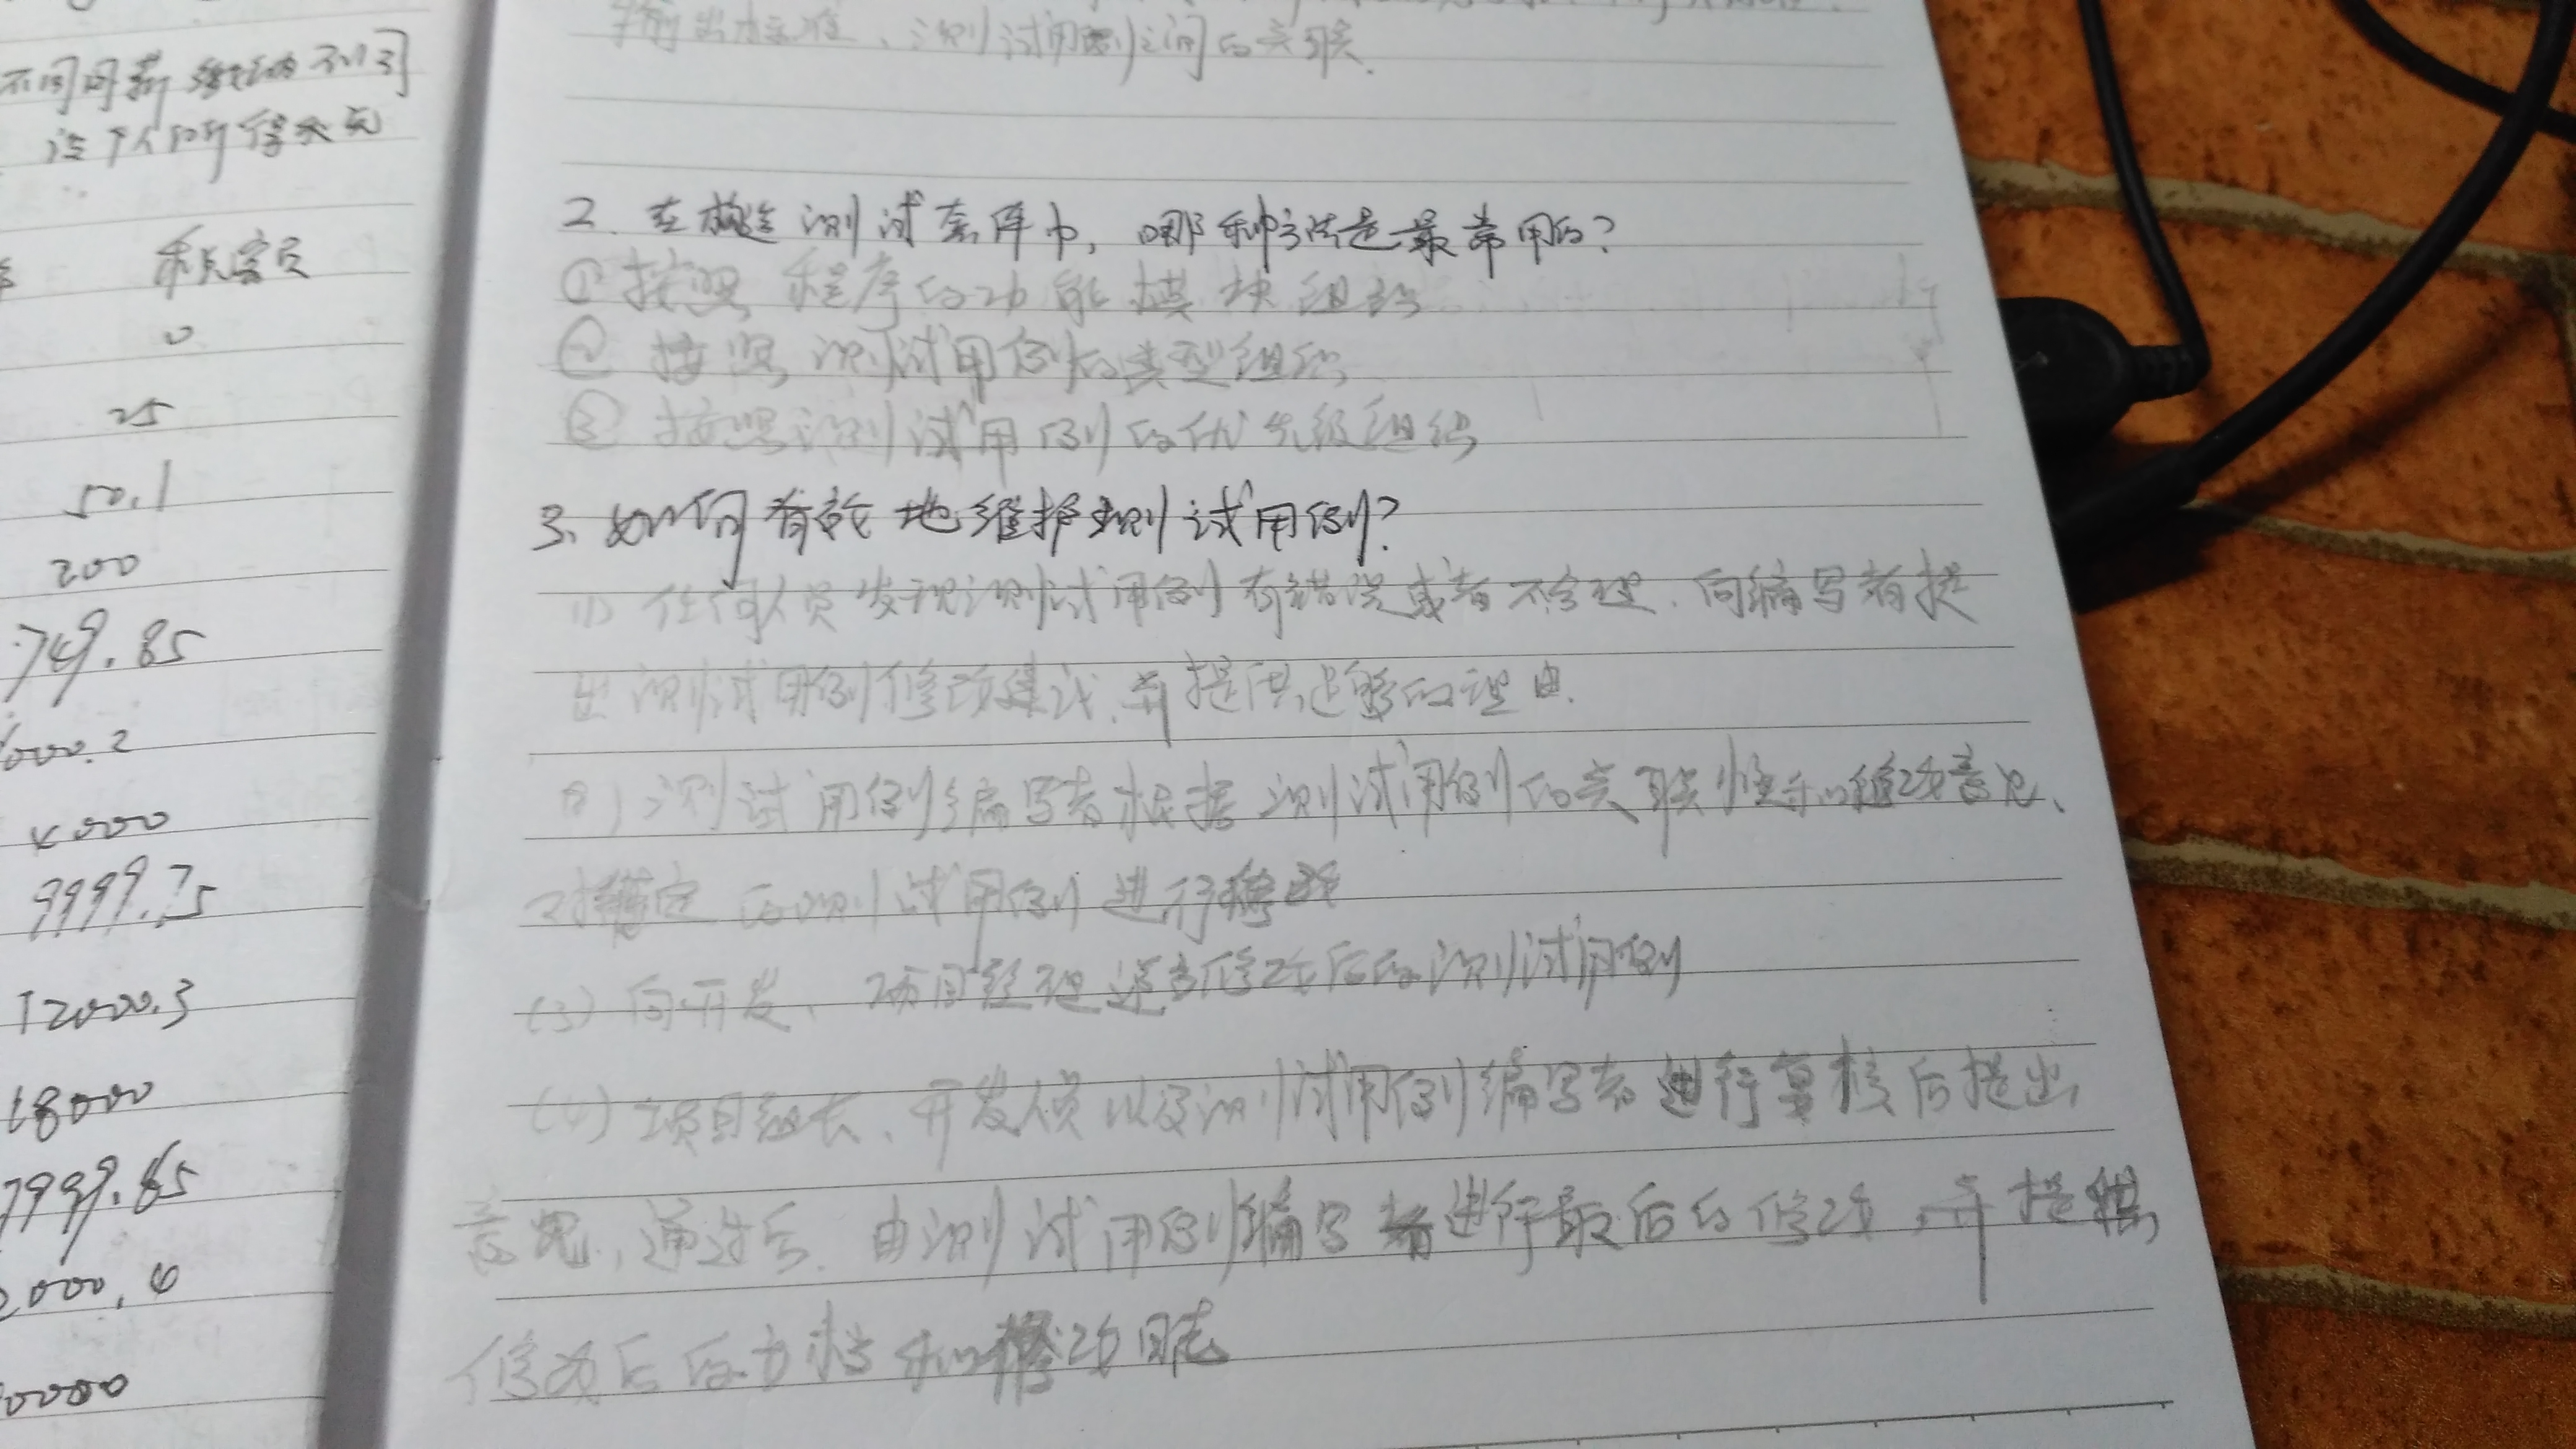 不同月薪缴纳不同
这个人所得税充
税容员
0
25
50.1
200
749.85
000.2
4000
9999.75
12000.3
18000
7999.85
000.4
0000
输出标准、测试用例之间的关联.
2. 在构造测试套件中,哪种方法是最常用的?
① 按照程序的功能模块组织
② 按照测试用例的类型组织
③ 按照测试用例的优先级组织
3、如何有效地维护测试用例?
(1) 任何人员发现测试用例有错误或者不合理,向编写者提
出测试用例修改建议,并提供足够的理由.
(2) 测试用例编写者根据测试用例的关联性和修改意见、
对特定的测试用例进行修改
(3) 向开发、项目经理递交修改后的测试用例
(4) 项目组长、开发人员以及测试用例编写者进行复核后提出
意见,通过后.由测试用例编写者进行最后的修改,并提供
修改后的文档和修改日志